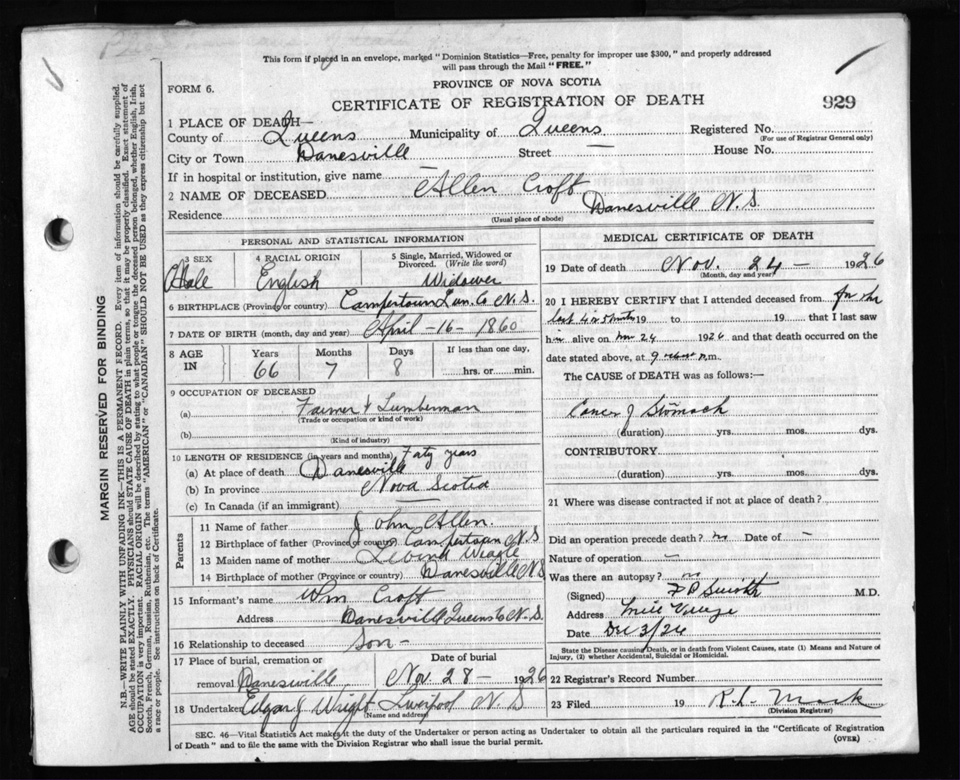 This form if placed in an envelope, marked "Dominion Statistics—Free, penalty for improper use $300," and properly addressed
will pass through the Mail "FREE."
FORM 6.
PROVINCE OF NOVA SCOTIA
CERTIFICATE OF REGISTRATION OF DEATH
929
1 PLACE OF DEATH—
County of Queens Municipality of Queens Registered No.
(For use of Registrar General only)
City or Town Danesville Street — House No.
If in hospital or institution, give name —
2 NAME OF DECEASED Allen Croft
Residence Danesville N.S.
(Usual place of abode)
PERSONAL AND STATISTICAL INFORMATION
3 SEX 4 RACIAL ORIGIN 5 Single, Married, Widowed or
Divorced. (Write the word)
Male English Widower
6 BIRTHPLACE (Province or country) Campertown Lun. Co N.S.
7 DATE OF BIRTH (month, day and year) April -16- 1860
8 AGE IN Years Months Days If less than one day,
66 7 8 hrs. or min.
9 OCCUPATION OF DECEASED
(a) Farmer & Lumberman
(Trade or occupation or kind of work)
(b)
(Kind of industry)
10 LENGTH OF RESIDENCE (in years and months) Forty years
(a) At place of death Danesville
(b) In province Nova Scotia
(c) In Canada (if an immigrant) —
Parents
11 Name of father John Allen.
12 Birthplace of father (Province or country) Campertown N S
13 Maiden name of mother Weagle
14 Birthplace of mother (Province or country) Danesville N S
15 Informant's name Wm Croft
Address Danesville Queens Co N.S.
16 Relationship to deceased Son -
17 Place of burial, cremation or Date of burial
removal Danesville Nov 28 - 1926
18 Undertaker Edgar J Wright Liverpool N. S
(Name and address)
MEDICAL CERTIFICATE OF DEATH
19 Date of death Nov. 24 - 1926
(Month, day and year)
20 I HEREBY CERTIFY that I attended deceased from for the
last 4 or 5 mths 19 to 19 that I last saw
him alive on Nov 24 1926 and that death occurred on the
date stated above, at 9 m.
The CAUSE of DEATH was as follows:—
Cancer of Stomach
(duration) yrs. mos. dys.
CONTRIBUTORY
(duration) yrs. mos. dys.
21 Where was disease contracted if not at place of death?
Did an operation precede death? no Date of —
Nature of operation —
Was there an autopsy? no
(Signed) Smith M.D.
Address Mill Village
Date Dec 3/26
State the Disease causing Death, or in death from Violent Causes, state (1) Means and Nature of
Injury, (2) whether Accidental, Suicidal or Homicidal.
22 Registrar's Record Number
23 Filed 19 R. L. Mack
(Division Registrar)
SEC. 46—Vital Statistics Act makes it the duty of the Undertaker or person acting as Undertaker to obtain all the particulars required in the "Certificate of Registration
of Death" and to file the same with the Division Registrar who shall issue the burial permit.
(OVER)
MARGIN RESERVED FOR BINDING
N.B.—WRITE PLAINLY WITH UNFADING INK—THIS IS A PERMANENT RECORD. Every item of information should be carefully supplied.
AGE should be stated EXACTLY. PHYSICIANS should STATE CAUSE OF DEATH in plain terms, so that it may be properly classified. Exact statement of
OCCUPATION is very important. RACIAL ORIGIN will be described by stating to what people or tongue the deceased person belonged, whether English, Irish,
Scotch, French, German, Russian, Ruthenian, etc. The terms "AMERICAN" or "CANADIAN" SHOULD NOT BE USED as they express citizenship but not
a race or people. See instructions on back of Certificate.